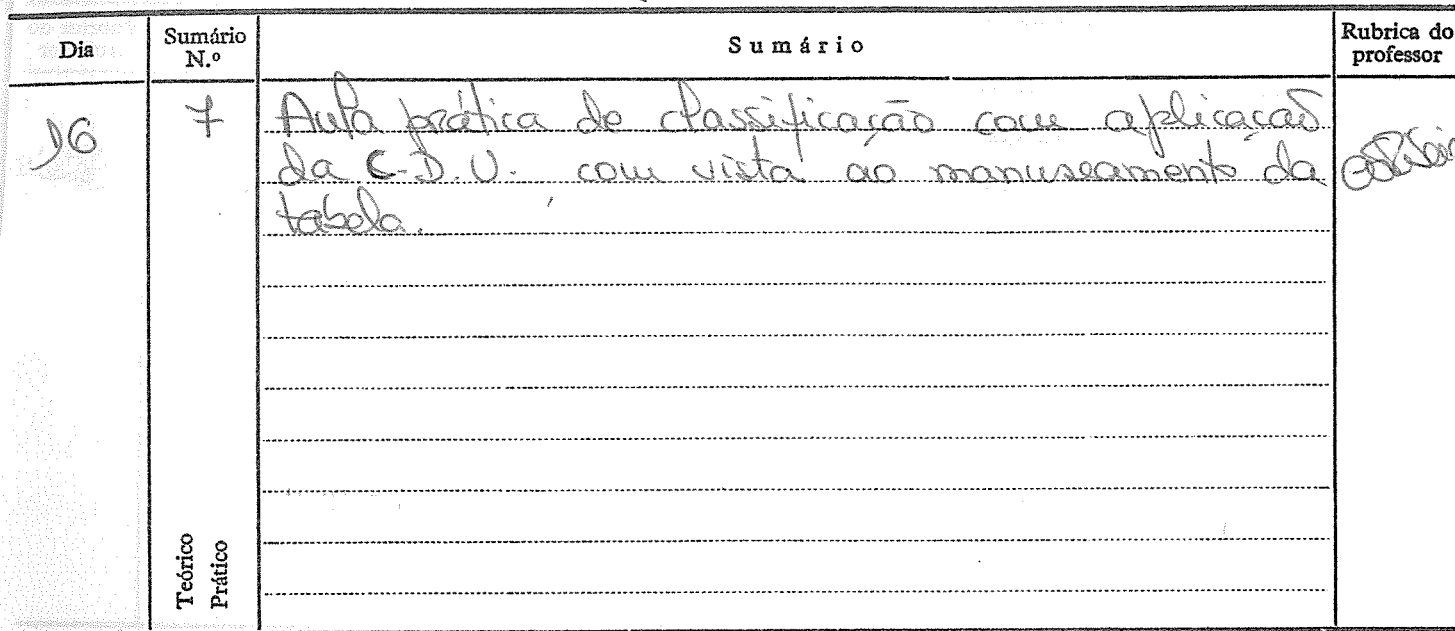 Dia
Sumário
N.º
Sumário
Rubrica do
professor
16
7
Aula prática de classificação com aplicação
da C.D.U. com vista ao manuseamento da
tabela.
Teórico
Prático